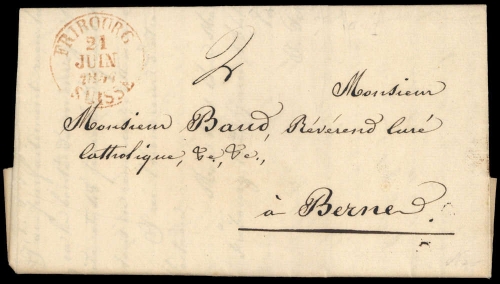 FRIBOURG
21
JUIN
SUISSE
2
Monsieur
Monsieur Baud, Révérend Curé
Catholique, &c, &c.,
à Berne.